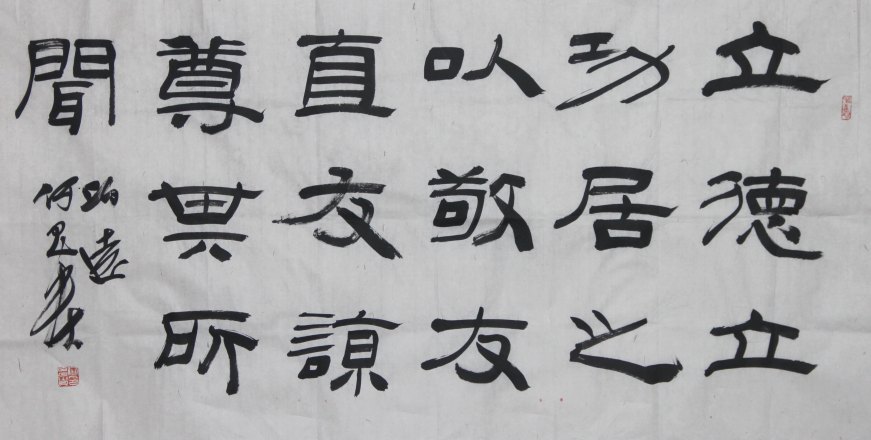 立德立
功居之
以敬友
直友諒
尊其所
聞